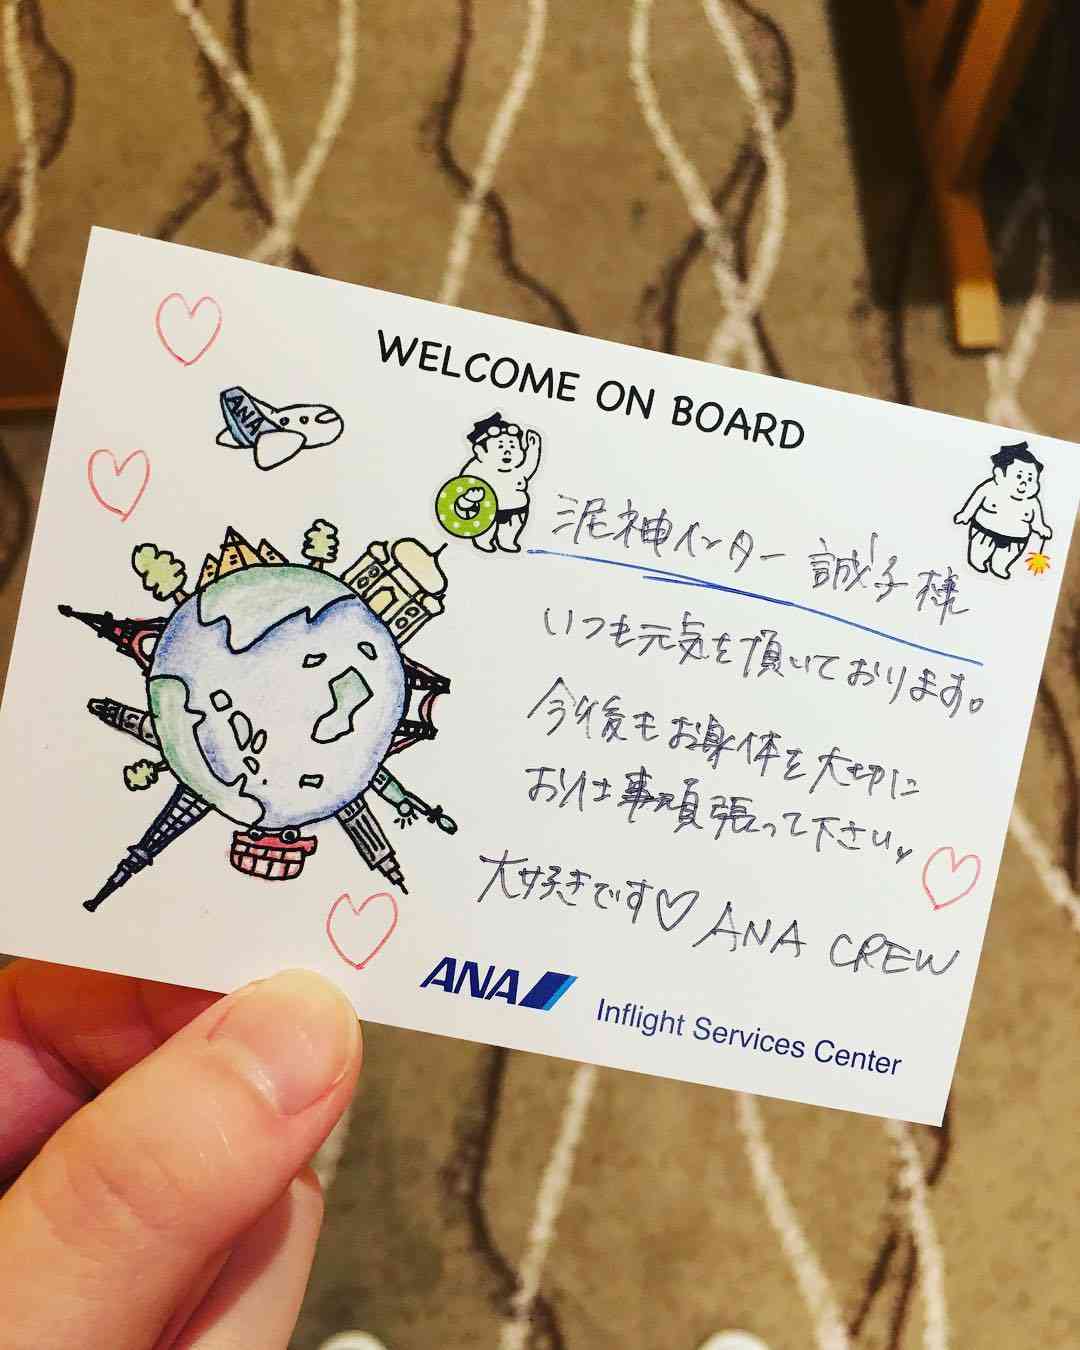 WELCOME ON BOARD
ANA
泥神インター 誠子様
いつも元気を頂いております。
今後もお身体を大切に
お仕事頑張って下さい。
大好きです♡ ANA CREW
ANA Inflight Services Center